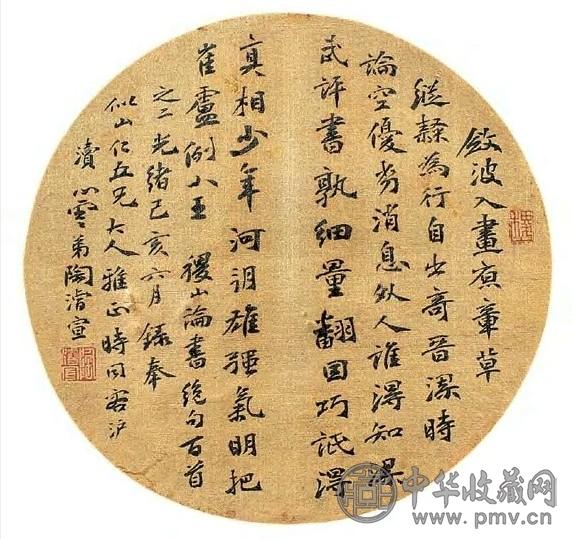 波入畫章草
隸為行自出奇晉時
論空優劣消息外人誰得知果
試評書孰細量翻因巧詆得
真相少年河朔雄強氣明把
崔盧例八王 稷山論書絕句百首
之二光緒己亥六月錄奉
似山仁兄大人雅正時同客滬
瀆 心雲弟陶濬宣
中华收藏网
www.pmv.cn